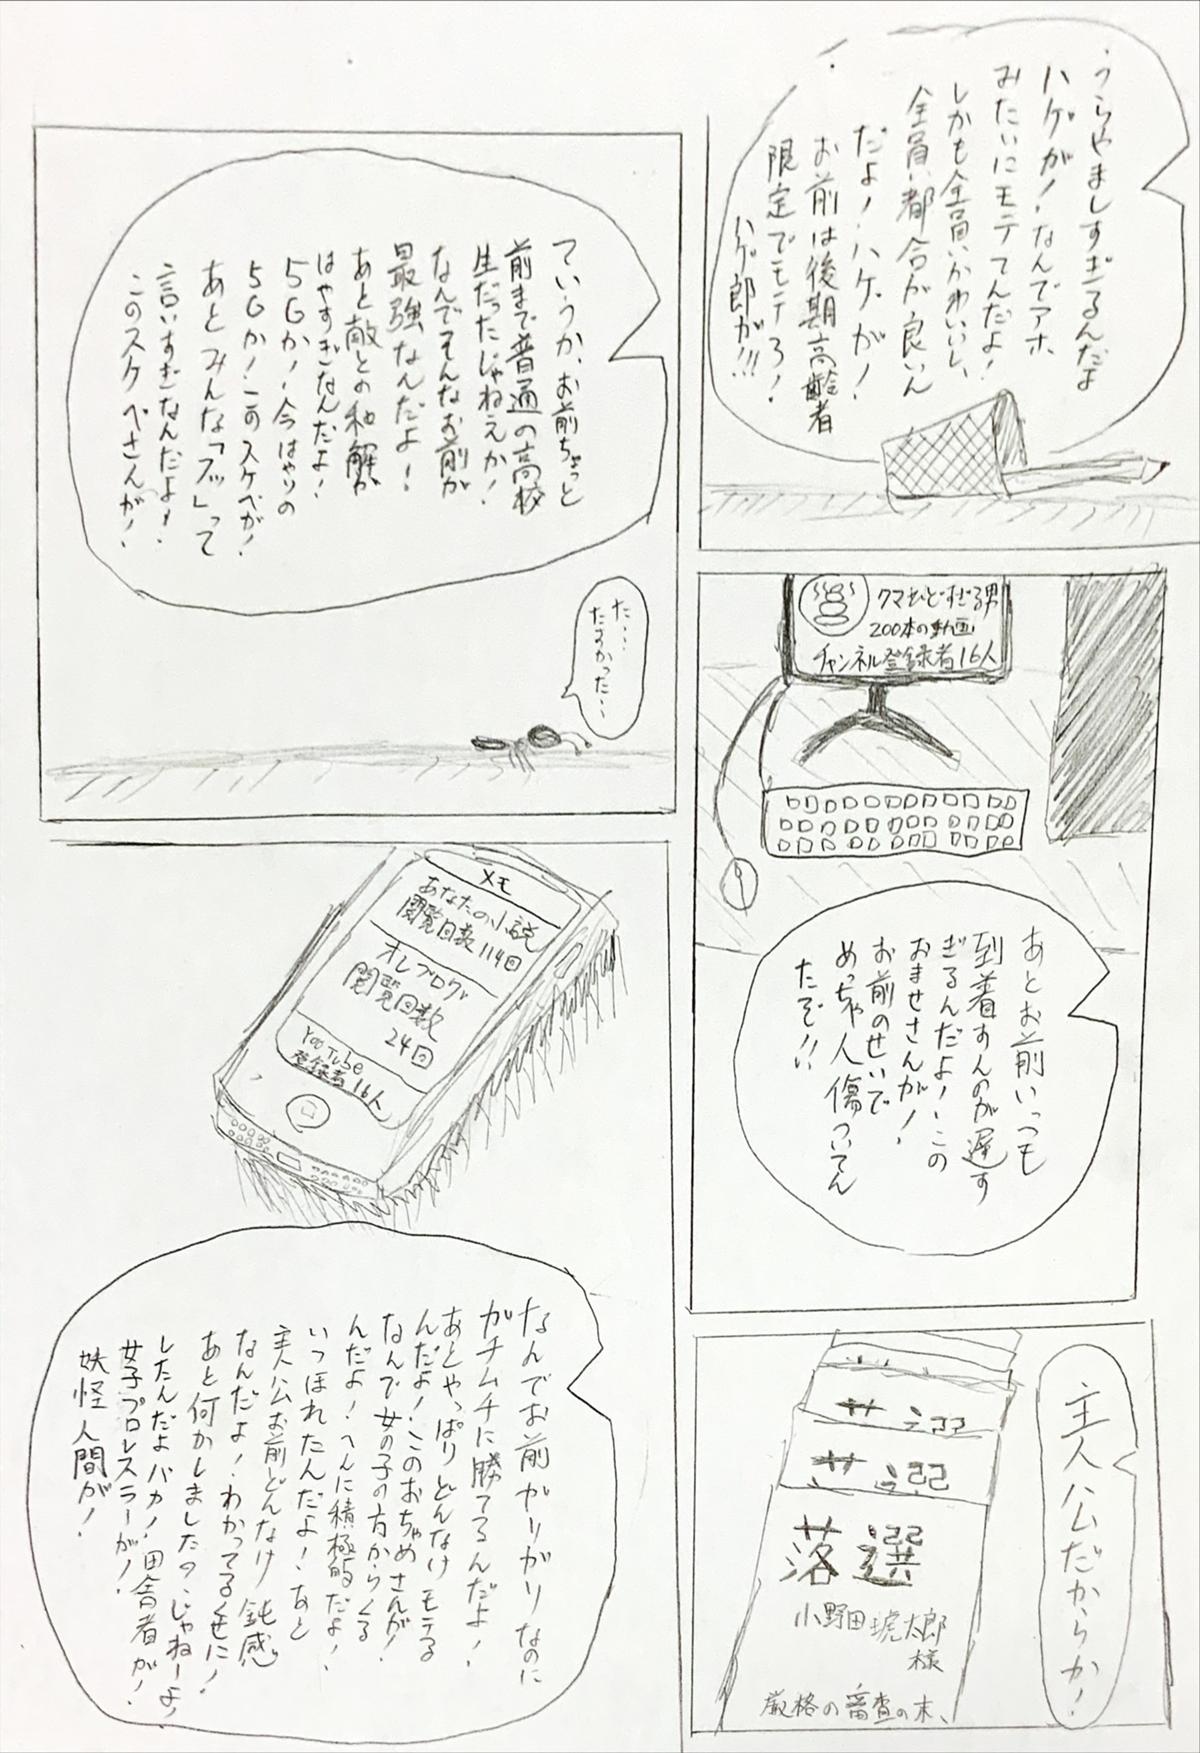 うらやましすぎるんだよ
ハゲが！なんでアホ
みたいにモテてんだよ！
しかも全員かわいいし、
全員都合が良いん
だよ！ハゲが！
お前は後期高齢者
限定でモテろ！
ハゲ郎が!!!
クマひどすぎる男
200本の動画
チャンネル登録者16人
あとお前いっつも
到着すんのが遅す
ぎるんだよ！この
おませさんが！
お前のせいで
めっちゃ人傷ついてん
たぞ!!
主人公だからか！
落選
小野田琥太郎
様
厳格の審査の末、
ていうか、お前ちょっと
前まで普通の高校
生だったじゃねえか！
なんでそんなお前が
最強なんだよ！
あと敵との和解が
はやすぎなんだよ！
5Gか！今はやりの
5Gか！このスケベが！
あとみんな「フッ」って
言いすぎなんだよ！
このスケベさんが！
た…
たすかった…
メモ
あなたの小説
閲覧回数114回
オレブログ
閲覧回数
24回
YouTube
登録者16人
なんでお前ガリガリなのに
ガチムチに勝てるんだよ！
あとやっぱりどんなけモテる
んだよ！このおちゃめさんが！
なんで女の子の方からくる
んだよ！へんに積極的だよ！
いつほれたんだよ！あと
主人公お前どんなけ鈍感
なんだよ！わかってるくせに！
あと何かしましたの？じゃねーよ！
したんだよバカ！田舎者が！
女子プロレスラーが！
妖怪人間が！